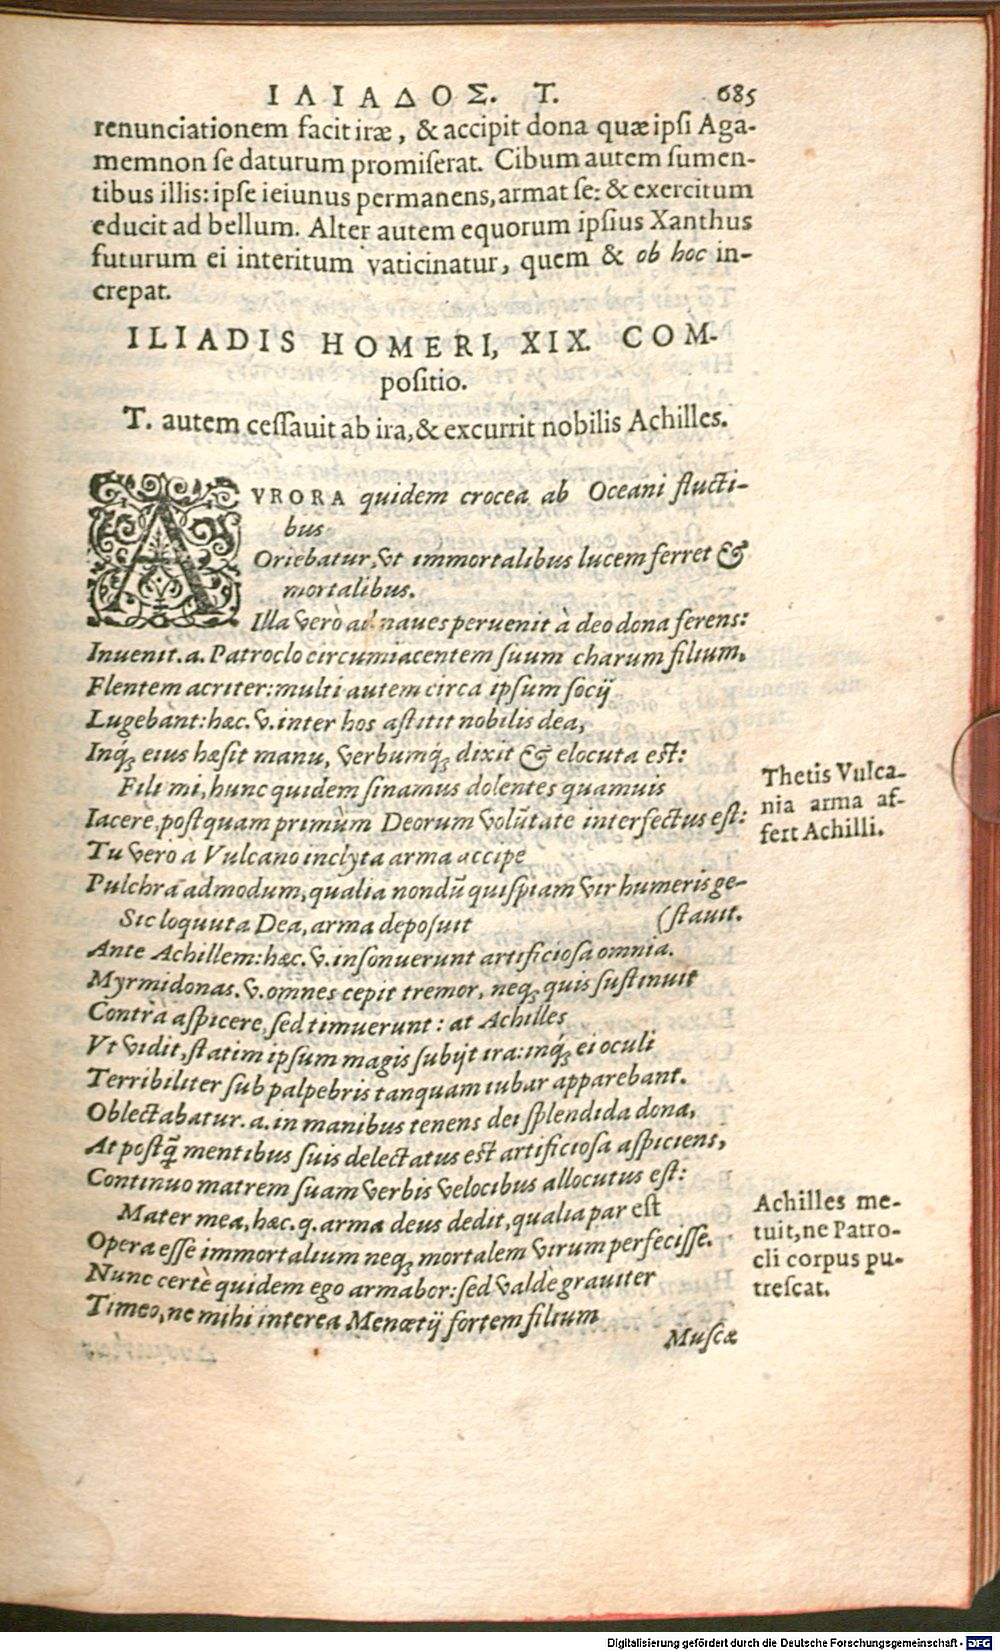 ΙΛΙΑΔΟΣ. Τ. 685
renunciationem facit iræ, & accipit dona quæ ipſi Aga-
memnon ſe daturum promiſerat. Cibum autem ſumen-
tibus illis: ipſe ieiunus permanens, armat ſe: & exercitum
educit ad bellum. Alter autem equorum ipſius Xanthus
futurum ei interitum vaticinatur, quem & ob hoc in-
crepat.
ILIADIS HOMERI, XIX. COM-
poſitio.
T. autem ceſſauit ab ira, & excurrit nobilis Achilles.
AVRORA quidem crocea ab Oceani fluctι-
bus
Oriebatur, vt immortalibus lucem ferret &
mortalibus.
Illa verò ad naues peruenit à deo dona ferens:
Inuenit. a. Patroclo circumiacentem ſuum charum filium,
Flentem acriter: multi autem circa ipſum ſocij
Lugebant: hæc. v. inter hos aſtitit nobilis dea,
Inq́ꝫ eius hæſit manu, verbumq́ꝫ dixit & elocuta eſt:
Fili mi, hunc quidem ſinamus dolentes quamuis
Iacere, poſtquam primùm Deorum volũtate interfectus eſt:
Tu verò a Vulcano inclyta arma accipe
Pulchra admodum, qualia nondũ quiſpiam vir humeris ge-
Sic loquuta Dea, arma depoſuit (ſtauit.
Ante Achillem: hæc. v. inſonuerunt artificioſa omnia.
Myrmidonas. v. omnes cepit tremor, neqꝫ quis ſuſtinuit
Contrà aſpicere, ſed timuerunt: at Achilles
Vt vidit, ſtatim ipſum magis ſubijt ira: inq́ꝫ ei oculi
Terribiliter ſub palpebris tanquam iubar apparebant.
Oblectabatur. a. in manibus tenens dei ſplendida dona,
At poſtq̃ mentibus ſuis delectatus eſt artificioſa aſpiciens,
Continuo matrem ſuam verbis velocibus allocutus eſt:
Mater mea, hæc. q. arma deus dedit, qualia par eſt
Opera eſſe immortalium neqꝫ mortalem virum perfeciſſe.
Nunc certè quidem ego armabor: ſed valdè grauiter
Timeo, ne mihi interea Menœtij fortem filium
Muſcæ
Thetis Vulca-
nia arma af-
fert Achilli.
Achilles me-
tuit, ne Patro-
cli corpus pu-
treſcat.
Digitalisierung gefördert durch die Deutsche Forschungsgemeinschaft - DFG